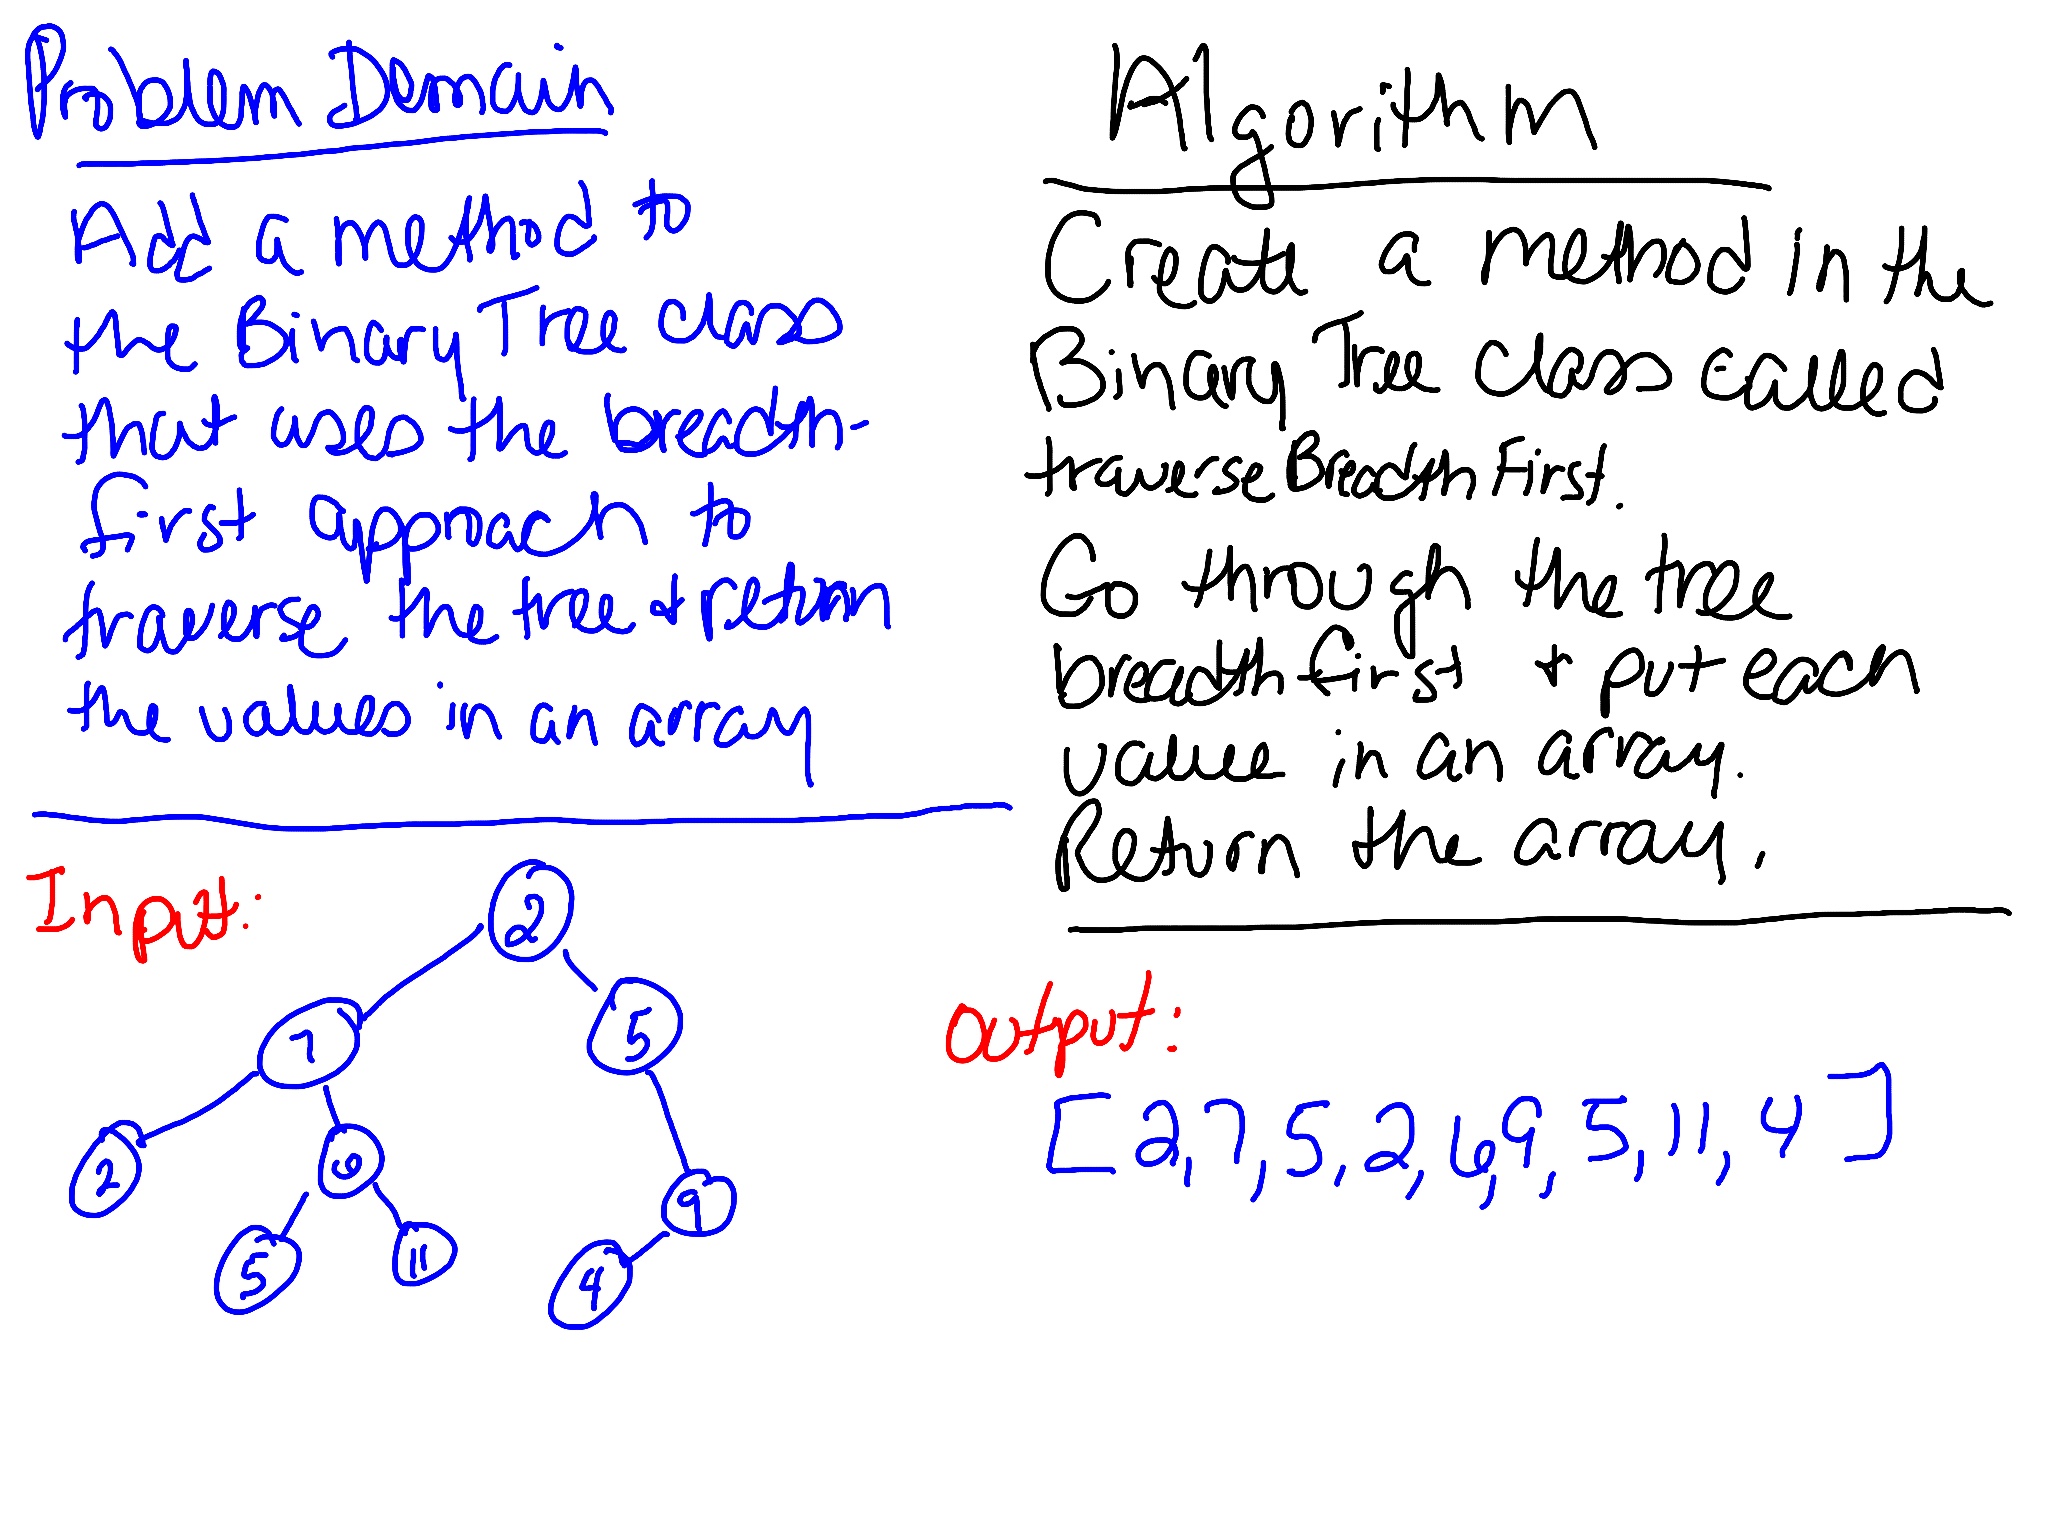 Problem Domain
Add a method to
the Binary Tree class
that uses the breadth-
first approach to
traverse the tree + return
the values in an array
Algorithm
Create a method in the
Binary Tree class called
traverse Breadth First.
Go through the tree
breadth first + put each
value in an array.
Return the array.
Input:
2
7
5
2
6
9
5
11
4
Output:
[2,7,5,2,6,9,5,11,4]